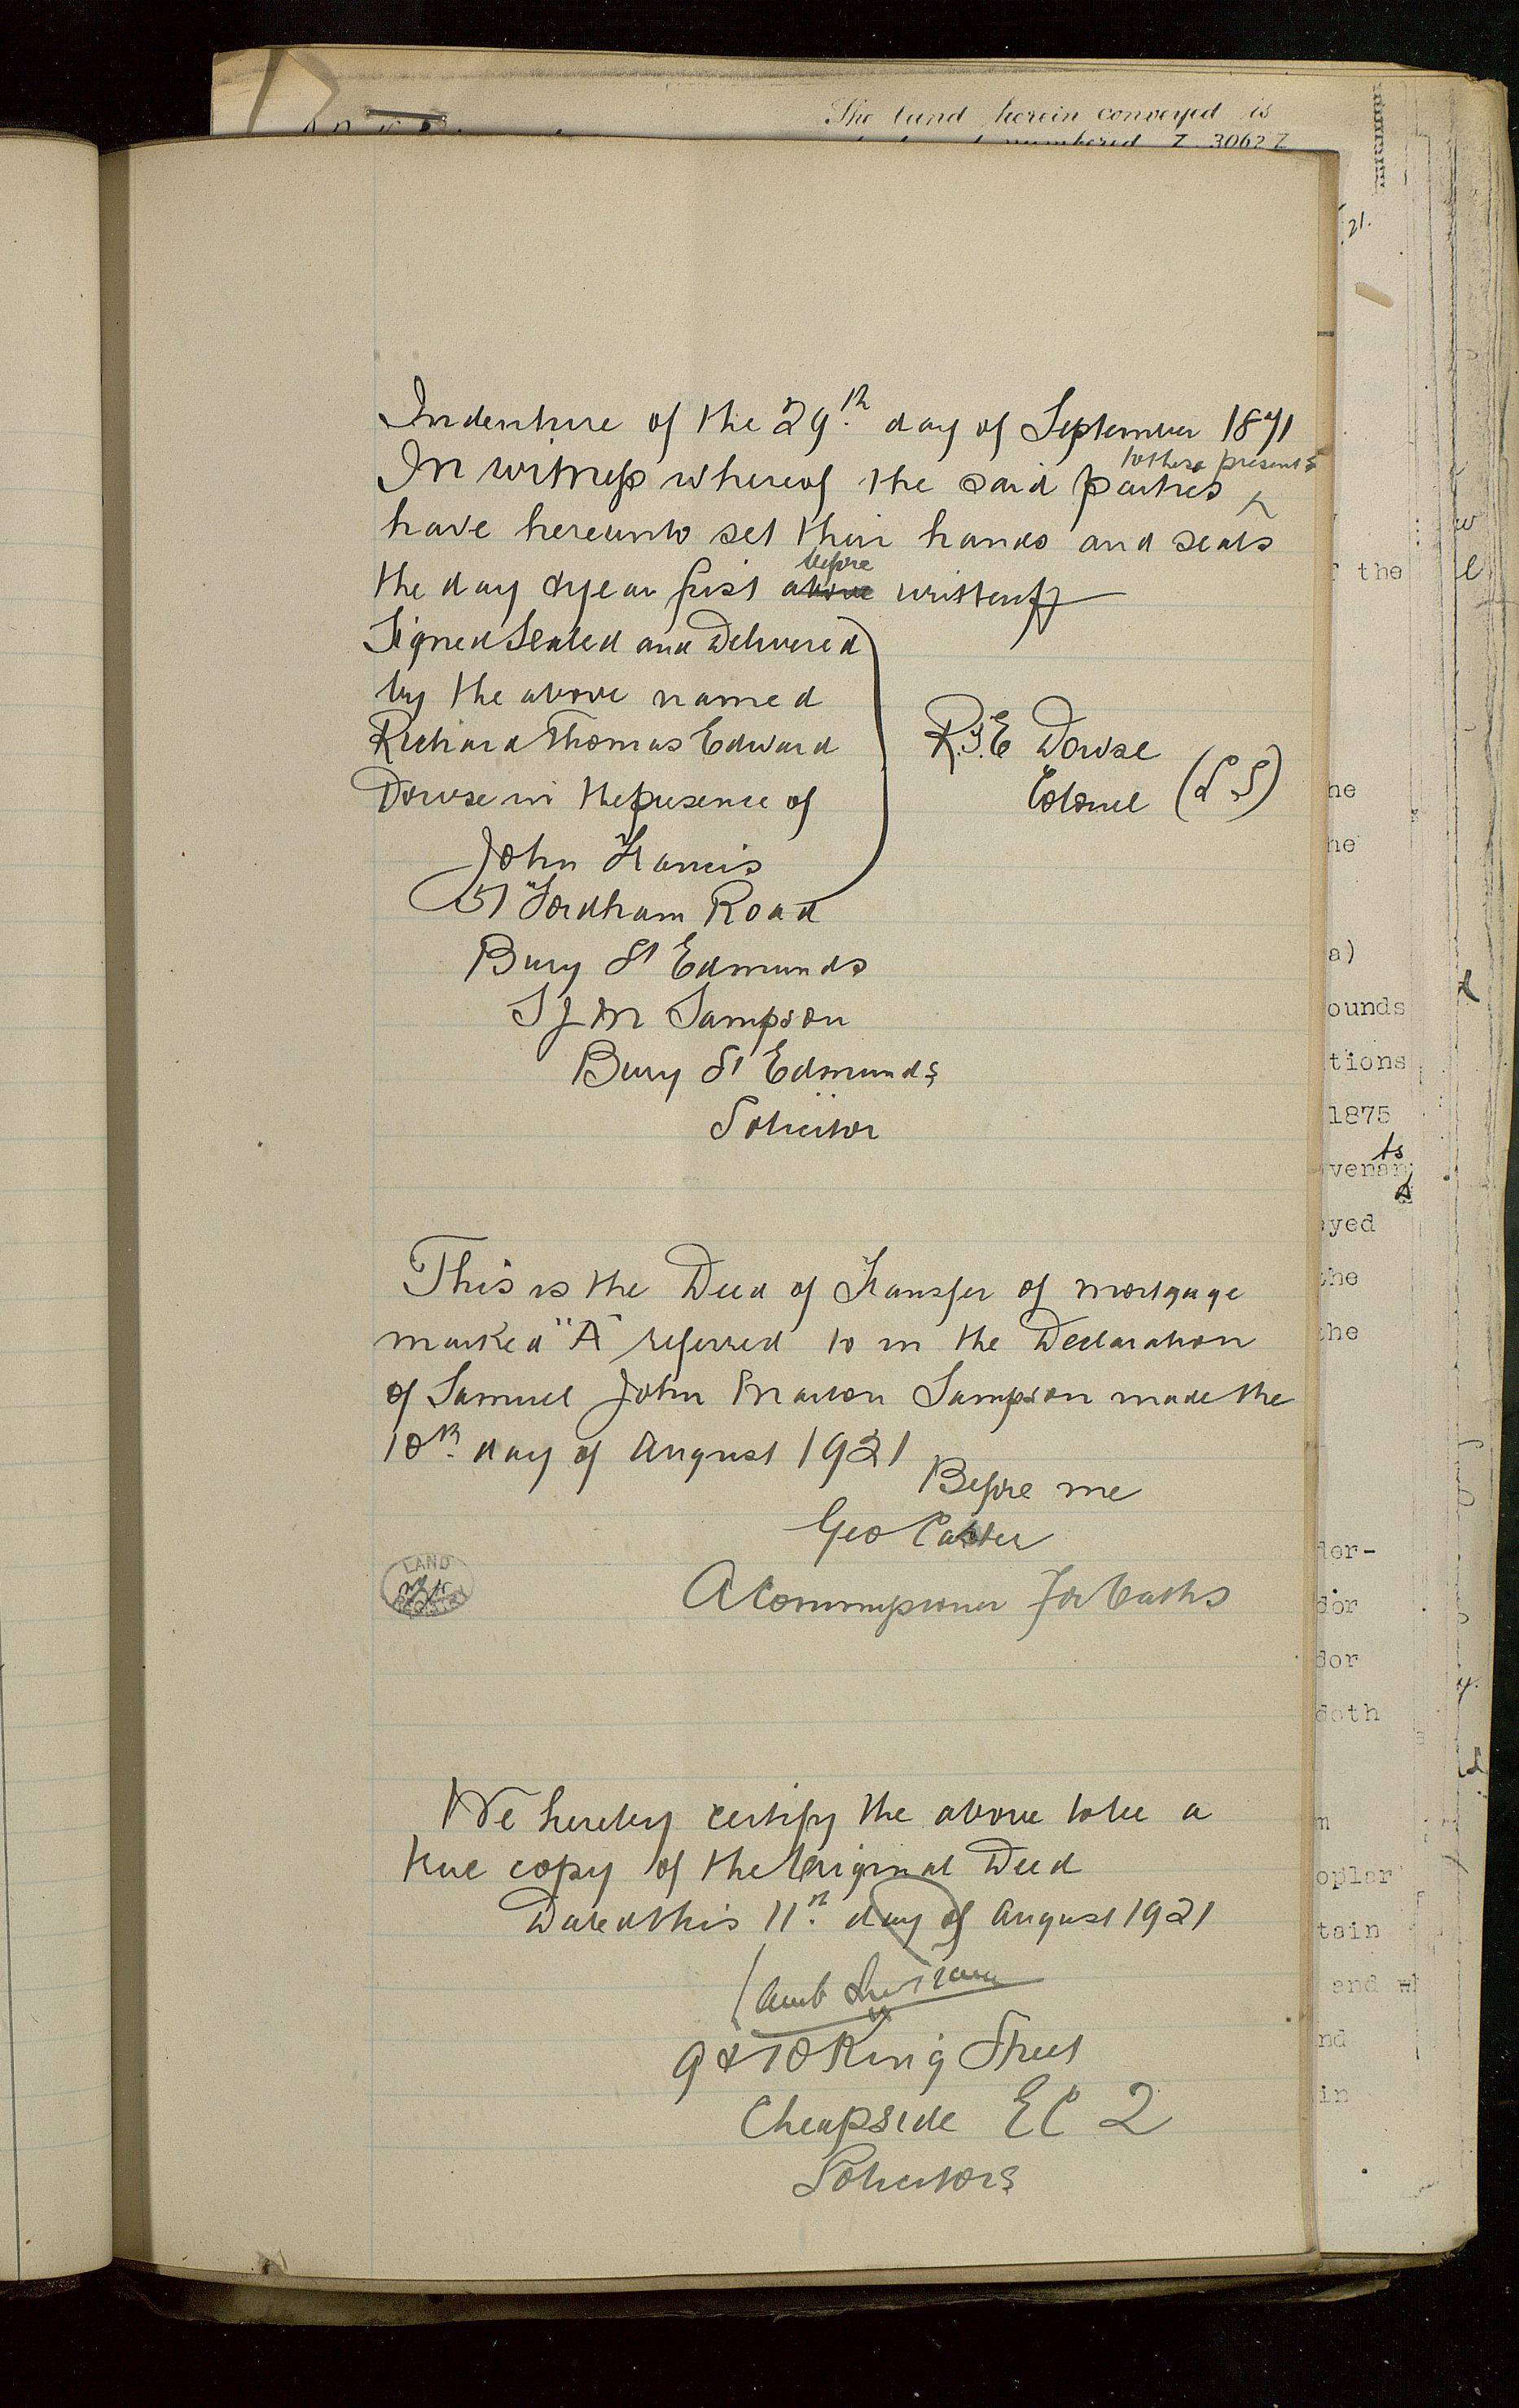 The land herein conveyed is
numbered Z 3062Z
Indenture of the 29th day of September 1871
In witness whereof the said parties to these presents
have hereunto set their hands and seals
the day & year first above before written
Signed Sealed and Delivered
by the above named
Richard Thomas Edward
Dowse in the presence of
R.T.E Dowse
Colonel (LS)
John Francis
51 Fordham Road
Bury St Edmunds
S J M Sampson
Bury St Edmunds
Solicitor
This is the Deed of Transfer of mortgage
marked "A" referred to in the Declaration
of Samuel John Maxton Sampson made the
10th day of August 1921
Before me
Geo
A Commissioner for Oaths
LAND
REGISTRY
We hereby certify the above to be a
true copy of the Original Deed
Dated this 11th day of August 1921
9 & 10 King Street
Cheapside EC 2
Solicitors
21.
the
he
he
a)
ounds
tions
1875
venants
eyed
the
the
der-
dor
dor
doth
m
oplar
tain
and
nd
in